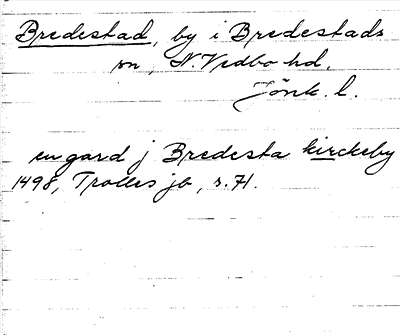 Bredestad, by i Bredestads
sn, N. Vedbo hd.
Jönk. l.
en gard j Bredesta kirckeby
1498, Trolles jb, s. 71.